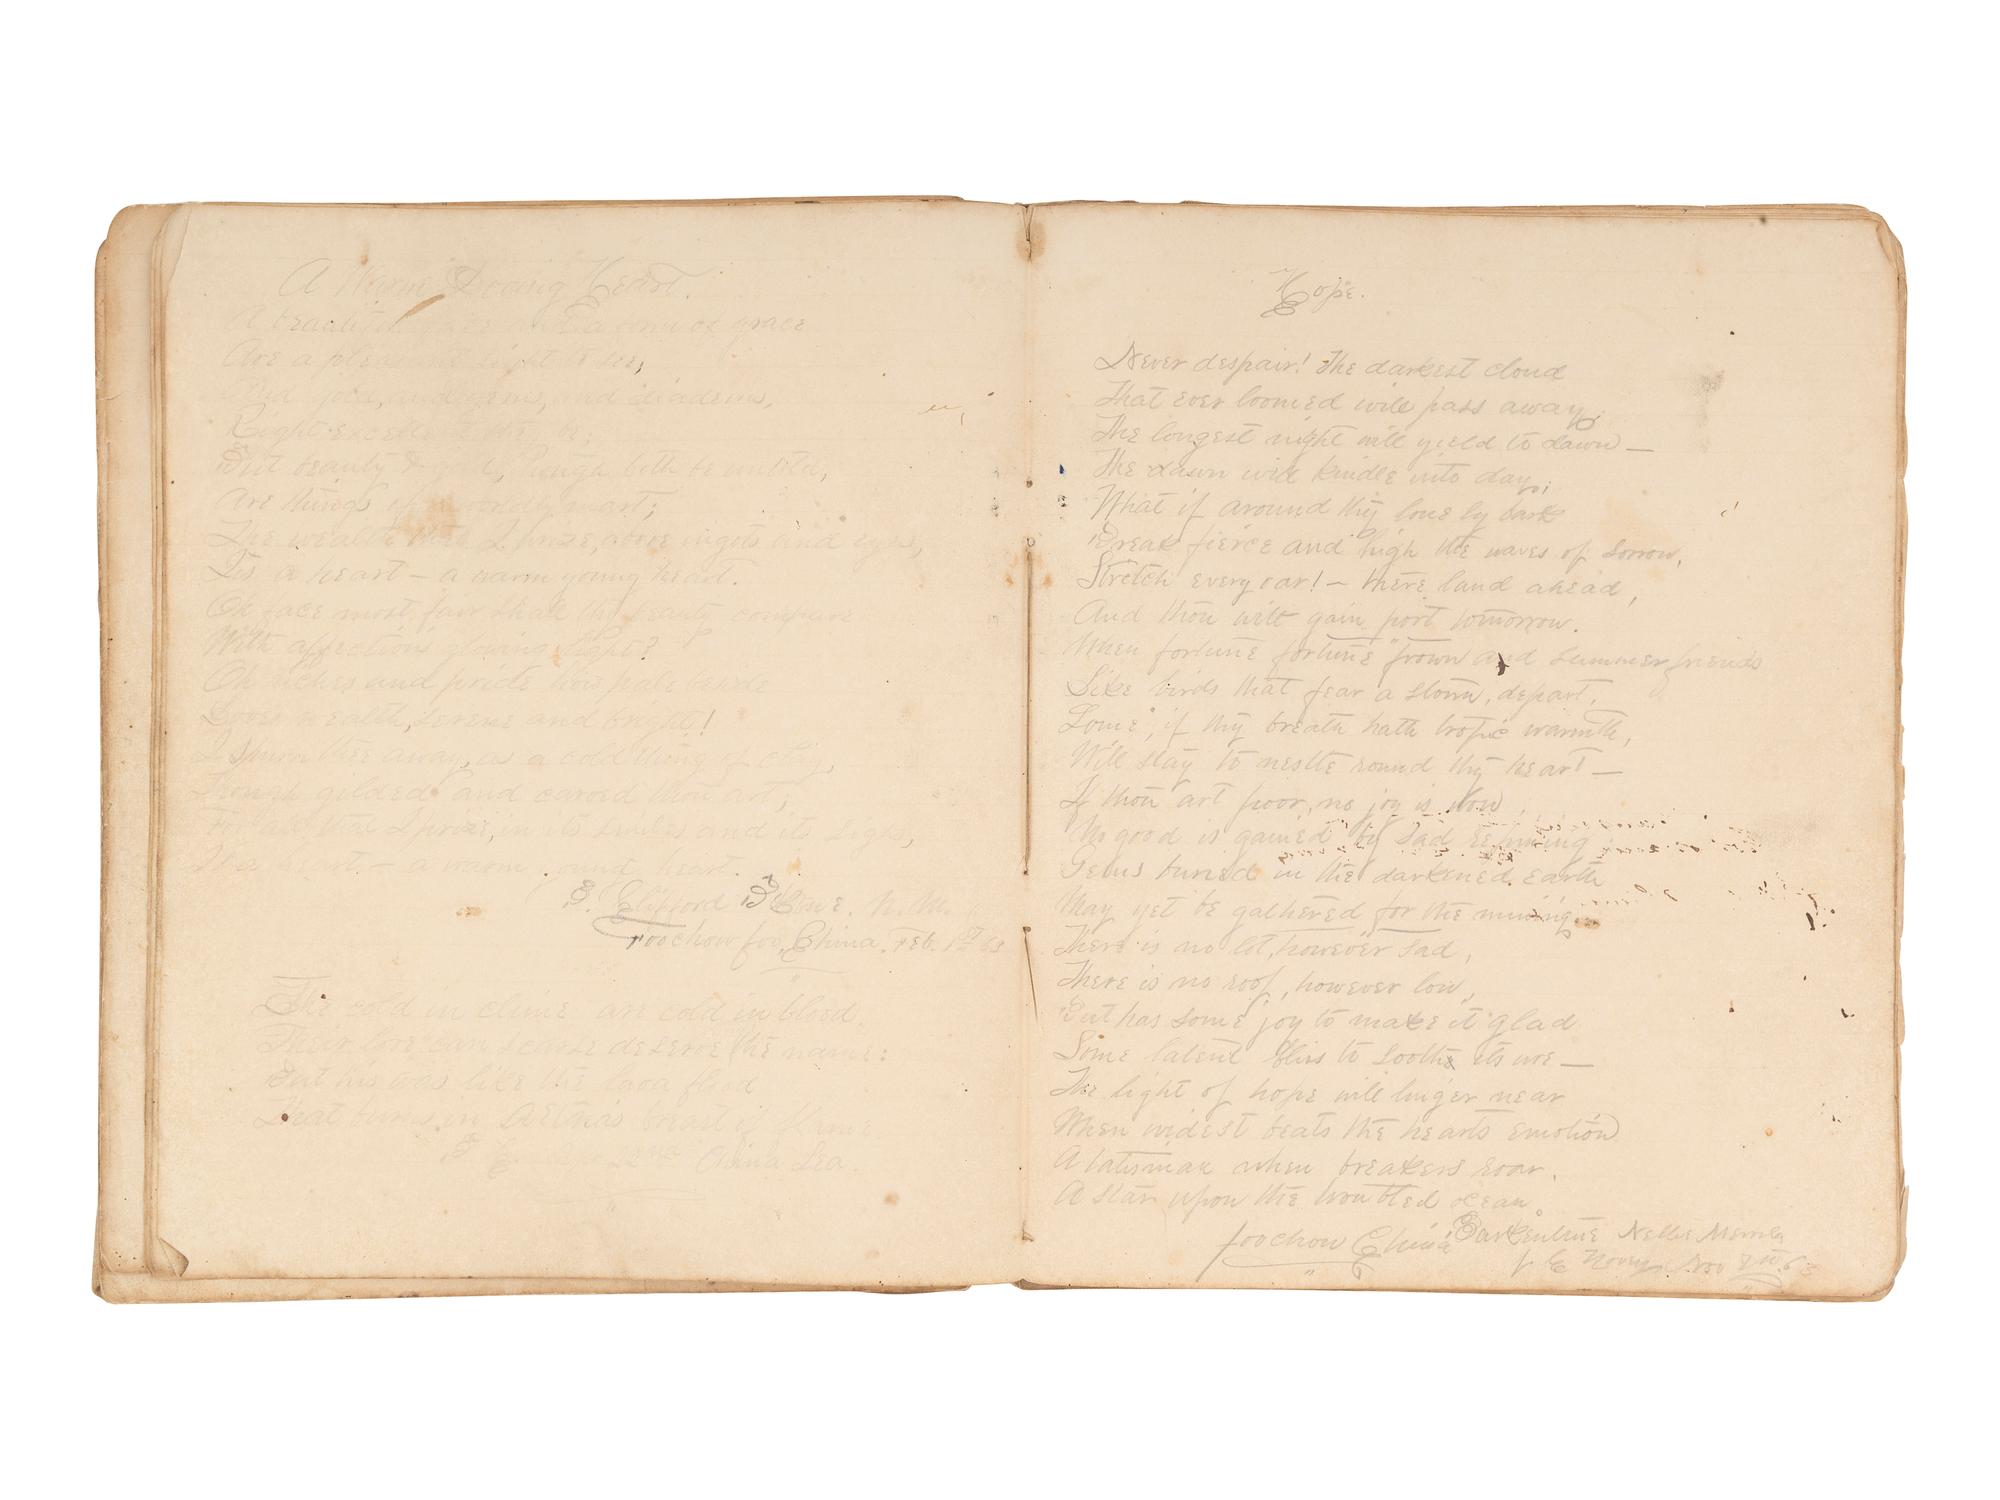 A Warm Loving Heart.
A beautiful face and a form of grace
Are a pleasant sight to see,
And gold, and gems, and diadems,
Right excellent they be;
But beauty & gold, though both be untold,
Are things of a worldly mart;
The wealth that I prize, above ingots and eyes,
Tis a heart — a warm young heart.
Oh face most fair shall thy beauty compare
With affections glowing light?
Oh riches and pride how pale beside
Loves wealth, serene and bright!
I spurn thee away, as a cold thing of clay,
Though gilded and carved thou art;
For all that I prize, in its smiles and its sighs,
Is a heart — a warm young heart.
Clifford
Foochow foo, China. Feb. 1st 63
The cold in clime are cold in blood.
Their love can scarse deserve the name:
But his was like the lava flood
That burns in Aetna's breast of flame
Apr 22nd China Sea.
Hope.
Never despair! The darkest cloud
That ever loomed will pass away,
The longest night will yield to dawn —
The dawn will kindle into day;
What if around thy lonely bark
Break fierce and high the waves of sorrow,
Stretch every oar! — there land ahead,
And thou wilt gain port tomorrow.
When fortune fortune frown and summer friends
Like birds that fear a storm, depart,
Some, if thy breath hath tropic warmth,
Will stay to nestle round thy heart —
If thou art poor, no joy is
No good is gained by sad repining
Gems buried in the darkened earth
May yet be gathered for the mining
There is no lot, however sad,
There is no roof, however low,
But has some joy to make it glad
Some latent bliss to soothe its woe —
The light of hope will linger near
When widest beats the hearts emotion
A talisman when breakers roar.
A star upon the troubled ocean.
Foochow China Barkentine Nellie
Nov 8th 6